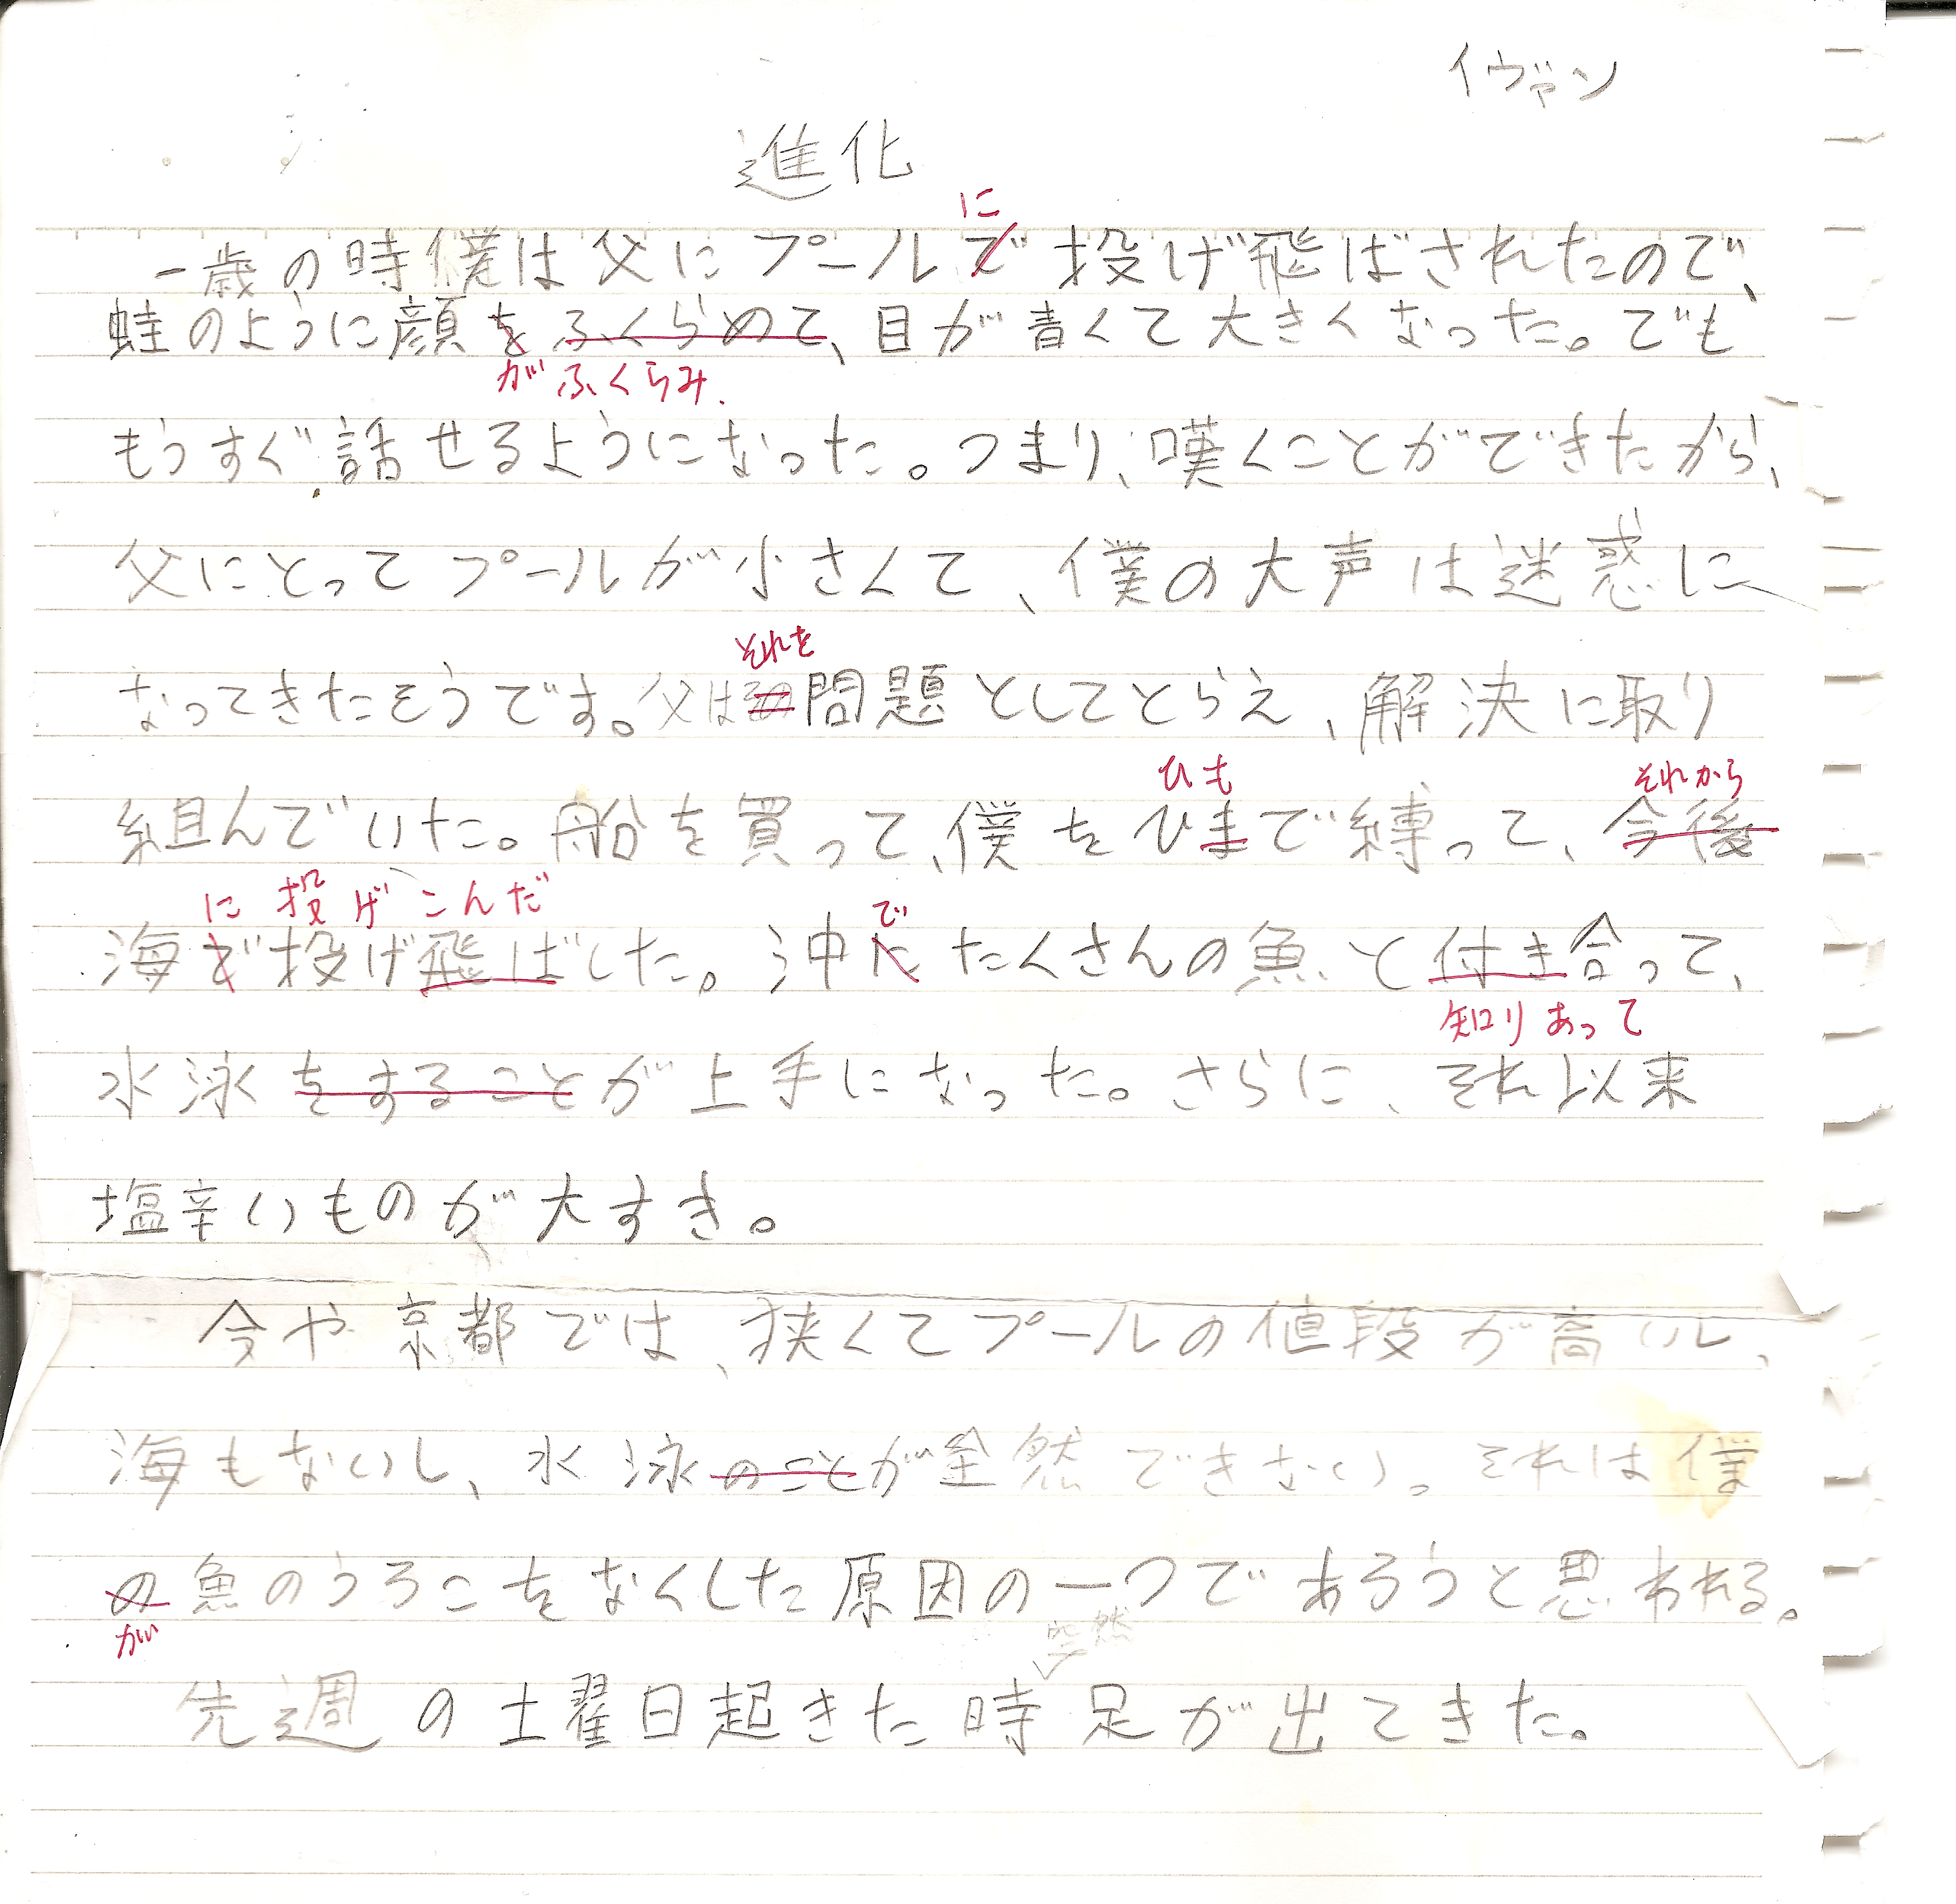 イヴァン
進化
に
一歳の時僕は父にプールで投げ飛ばされたので、
蛙のように顔をふくらめて、目が青くて大きくなった。でも
がふくらみ、
もうすぐ話せるようになった。つまり、嘆くことができたから、
父にとってプールが小さくて、僕の大声は迷惑に
それを
なってきたそうです。父は問題としてとらえ、解決に取り
ひも それから
組んでいた。船を買って、僕をひまで縛って、今後
に投げこんだ で
海で投げ飛ばした。沖にたくさんの魚と付き合って、
知りあって
水泳をすることが上手になった。さらに、それ以来
塩辛いものが大すき。
今や京都では、狭くてプールの値段が高いし、
海もないし、水泳のことが全然できない。それは僕
の魚のうろこをなくした原因の一つであろうと思われる。
が 突然
先週の土曜日起きた時足が出てきた。